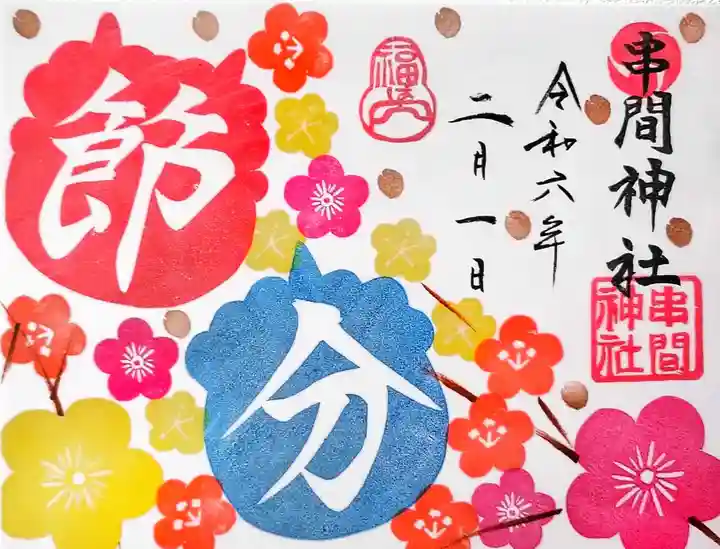 串間神社
令和六年
二月一日
節
分
串間
神社